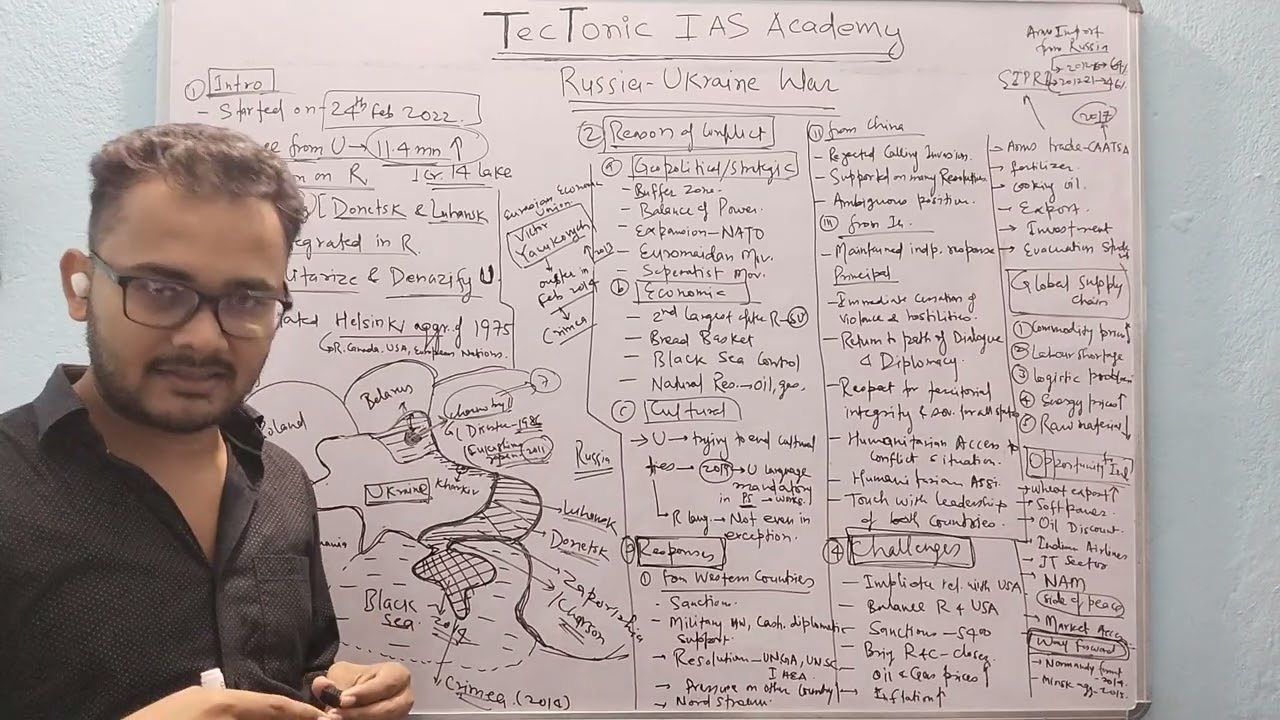 TecTonic IAS Academy
Russia-Ukraine War
① Intro
- Started on 24th Feb 2022.
from U → 11.4 mn ↑
on R 1 Cr. 14 lake
[Donetsk & Luhansk
egrated in R
itarize & Denazify U
ated Helsinki aggr. of 1975
R. Canada, USA, European Nations.
Eurasian Economic Union.
Victor
2013
ouster in
Feb 2014
Crimea
Poland
Belarus
Disaster-1986
⑦
Russia
Ukraine
Kharkiv
Luhansk
Donetsk
Kherson
Black
Sea.
Crimea (2014)
② Reason of Conflict
ⓐ Geopolitical/Strategic
- Buffer Zone.
- Balance of Power.
- Expansion-NATO
- Euromaidan Mov.
- Seperatist Mov.
ⓑ Economic
- 2nd largest after R-SU
- Bread Basket
- Black Sea Control
- Natural Res.→Oil, gas.
ⓒ Cultural
→ U → trying to end cultural
ties → 2019 → U language
mandatory
in PS → works.
→ R lang. → Not even in
exception.
③ Responses
① from Western Countries
- Sanction.
- Military, Cash, diplomatic
Support.
→ Resolution-UNGA, UNSC
IAEA
→ Pressure on other Country
→ Nord Stream.
ⓘⓘ from China
- Rejected Calling Invasion.
- Supported on many Resolution
- Ambiguous position.
ⓘⓘⓘ from In.
- Maintained indp. response
Principal
- Immediate Cessation of
Violence & hostilities.
- Return to path of Dialogue
& Diplomacy.
- Respect for territorial
integrity & sov. for all states
- Humanitarian Access to
Conflict Situation.
- Humanitarian Assi.
- Touch with leadership
of both Countries.
④ Challenges
- Implicate rel. with USA
- Balance R & USA
- Sanctions-S400
- Bring R&C-closer
- Oil & Gas prices ↑
→ Inflation ↑
Arms Import
from Russia
SIPRI
2017
→ Arms trade-CAATSA
→ fertilizer.
→ Cooking oil.
→ Export.
→ Investment
→ Evacuation
Global Supply
chain
① Commodity price↑
② Labour shortage
③ Logistic problem
④ Energy price↑
⑤ Raw material↓
Opportunity Ind
→ Wheat export↑
→ Oil Discount.
→ Indian Airlines
→ IT Sector
→ NAM
(Side of peace)
→ Market Acce
Way forward
→ Normandy
→ Minsk